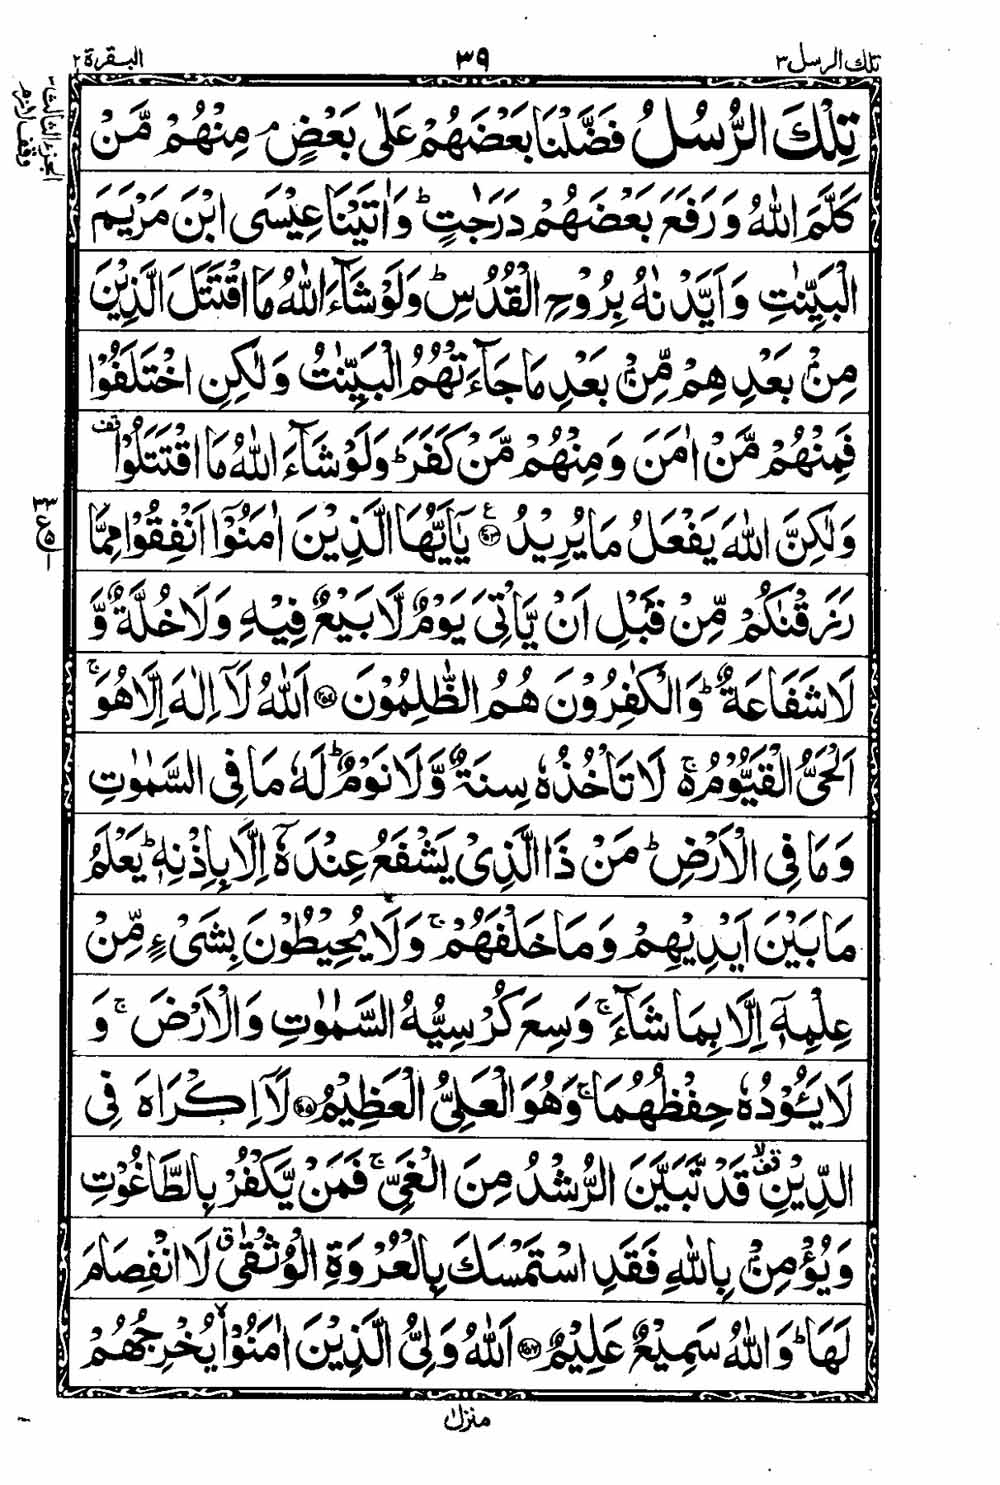 تلك الرسل ٣ ٣٩ البقرة ٢
تِلْكَ الرُّسُلُ فَضَّلْنَا بَعْضَهُمْ عَلٰى بَعْضٍ ۘ مِنْهُمْ مَّنْ
كَلَّمَ اللّٰهُ وَرَفَعَ بَعْضَهُمْ دَرَجٰتٍ ؕ وَاٰتَيْنَا عِيْسَى ابْنَ مَرْيَمَ
الْبَيِّنٰتِ وَاَيَّدْنٰهُ بِرُوْحِ الْقُدُسِ ؕ وَلَوْ شَآءَ اللّٰهُ مَا اقْتَتَلَ الَّذِيْنَ
مِنْۢ بَعْدِهِمْ مِّنْۢ بَعْدِ مَا جَآءَتْهُمُ الْبَيِّنٰتُ وَلٰكِنِ اخْتَلَفُوْا
فَمِنْهُمْ مَّنْ اٰمَنَ وَمِنْهُمْ مَّنْ كَفَرَ ؕ وَلَوْ شَآءَ اللّٰهُ مَا اقْتَتَلُوْا قف
وَلٰكِنَّ اللّٰهَ يَفْعَلُ مَا يُرِيْدُ ﴿۲۵۳﴾ ع يٰۤاَيُّهَا الَّذِيْنَ اٰمَنُوْۤا اَنْفِقُوْا مِمَّا
رَزَقْنٰكُمْ مِّنْ قَبْلِ اَنْ يَّاْتِىَ يَوْمٌ لَّا بَيْعٌ فِيْهِ وَلَا خُلَّةٌ وَّ
لَا شَفَاعَةٌ ؕ وَالْكٰفِرُوْنَ هُمُ الظّٰلِمُوْنَ ﴿۲۵۴﴾ اَللّٰهُ لَاۤ اِلٰهَ اِلَّا هُوَ ۚ
اَلْحَىُّ الْقَيُّوْمُ ۚ۬ لَا تَاْخُذُهٗ سِنَةٌ وَّلَا نَوْمٌ ؕ لَهٗ مَا فِى السَّمٰوٰتِ
وَمَا فِى الْاَرْضِ ؕ مَنْ ذَا الَّذِىْ يَشْفَعُ عِنْدَهٗۤ اِلَّا بِاِذْنِهٖ ؕ يَعْلَمُ
مَا بَيْنَ اَيْدِيْهِمْ وَمَا خَلْفَهُمْ ۚ وَلَا يُحِيْطُوْنَ بِشَىْءٍ مِّنْ
عِلْمِهٖۤ اِلَّا بِمَا شَآءَ ۚ وَسِعَ كُرْسِيُّهُ السَّمٰوٰتِ وَالْاَرْضَ ۚ وَ
لَا يَئُوْدُهٗ حِفْظُهُمَا ۚ وَهُوَ الْعَلِىُّ الْعَظِيْمُ ﴿۲۵۵﴾ لَاۤ اِكْرَاهَ فِى
الدِّيْنِ ۙ قف قَدْ تَّبَيَّنَ الرُّشْدُ مِنَ الْغَىِّ ۚ فَمَنْ يَّكْفُرْ بِالطَّاغُوْتِ
وَيُؤْمِنْۢ بِاللّٰهِ فَقَدِ اسْتَمْسَكَ بِالْعُرْوَةِ الْوُثْقٰى ق لَا انْفِصَامَ
لَهَا ؕ وَاللّٰهُ سَمِيْعٌ عَلِيْمٌ ﴿۲۵۶﴾ اَللّٰهُ وَلِىُّ الَّذِيْنَ اٰمَنُوْا ۙ يُخْرِجُهُمْ
الجزء الثالث
وقف لازم
٣٣
ع
منزل